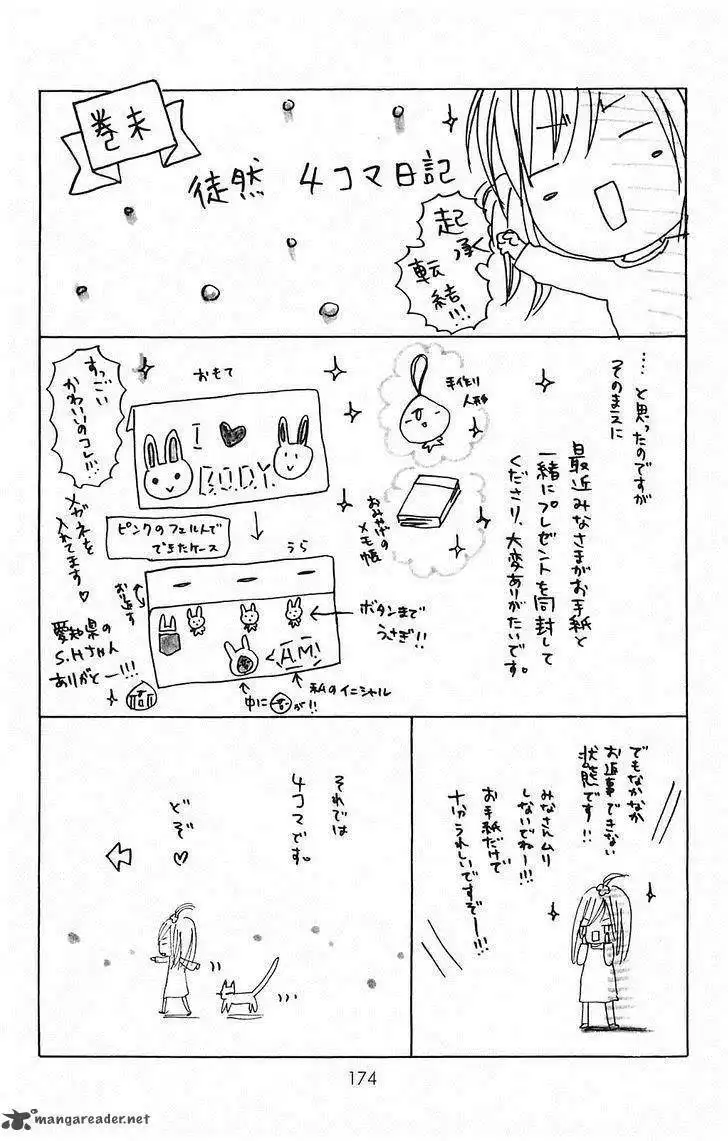 巻末
徒然 4コマ日記
起
承
転
結!!!
…… と思ったのですが
そのまえに
最近みなさまがお手紙と
一緒にプレゼントを同封して
くださり、大変ありがたいです。
手作り
人形
おみやげの
メモ帳
おもて
I ♥
B.O.D.Y.
すっごい
かわいいのコレ!!!
メガネを
入れてます♡
ピンクのフェルトで
できたケース
うら
お返す
ボタンまで
うさぎ!!
A.M.
私のイニシャル
中に
が!!
愛知県の
S.Hさん
ありがとー!!!
でもなかなか
お返事できない
状態です!!
みなさんムリ
しないでねー!!!
お手紙だけで
十分うれしいですぞー!!!
それでは
4コマです。
どぞ♡
174
mangareader.net